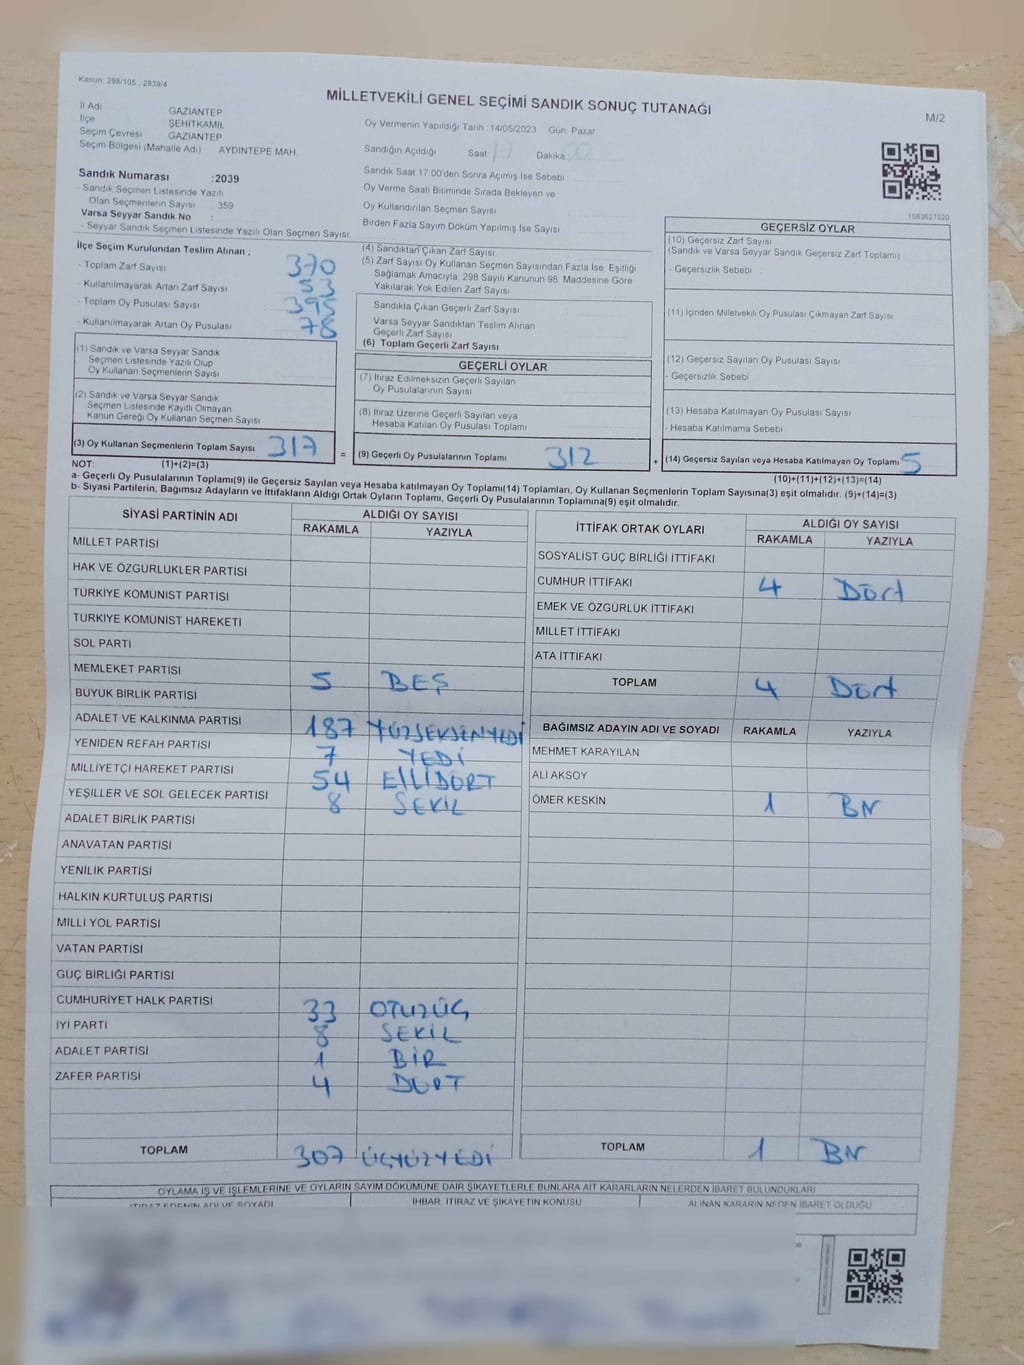 Kanun: 298/105 , 2839/4
MİLLETVEKİLİ GENEL SEÇİMİ SANDIK SONUÇ TUTANAĞI
M/2
İl Adı GAZİANTEP
İlçe ŞEHİTKAMİL
Seçim Çevresi GAZİANTEP
Seçim Bölgesi (Mahalle Adı) AYDINTEPE MAH.
Oy Vermenin Yapıldığı Tarih 14/05/2023 Gün: Pazar
Sandığın Açıldığı Saat 17 Dakika 00
Sandık Numarası :2039
- Sandık Seçmen Listesinde Yazılı
Olan Seçmenlerin Sayısı 359
Varsa Seyyar Sandık No :
- Seyyar Sandık Seçmen Listesinde Yazılı Olan Seçmen Sayısı:
Sandık Saat 17:00'den Sonra Açımış İse Sebebi :
Oy Verme Saati Bitiminde Sırada Bekleyen ve
Oy Kullandırılan Seçmen Sayısı
Birden Fazla Sayım Döküm Yapılmış İse Sayısı
1083627020
İlçe Seçim Kurulundan Teslim Alınan ;
- Toplam Zarf Sayısı 370
- Kullanılmayarak Artan Zarf Sayısı 53
- Toplam Oy Pusulası Sayısı 395
- Kullanılmayarak Artan Oy Pusulası 78
(1) Sandık ve Varsa Seyyar Sandık
Seçmen Listesinde Yazılı Olup
Oy Kullanan Seçmenlerin Sayısı
(2) Sandık ve Varsa Seyyar Sandık
Seçmen Listesinde Kayıtlı Olmayan
Kanun Gereği Oy Kullanan Seçmen Sayısı
(3) Oy Kullanan Seçmenlerin Toplam Sayısı 317
(4) Sandıktan Çıkan Zarf Sayısı
(5) Zarf Sayısı Oy Kullanan Seçmen Sayısından Fazla İse, Eşitliği
Sağlamak Amacıyla; 298 Sayılı Kanunun 98. Maddesine Göre
Yakılarak Yok Edilen Zarf Sayısı
Sandıkta Çıkan Geçerli Zarf Sayısı
Varsa Seyyar Sandıktan Teslim Alınan
Geçerli Zarf Sayısı
(6) Toplam Geçerli Zarf Sayısı
GEÇERLİ OYLAR
(7) İtiraz Edilmeksizin Geçerli Sayılan
Oy Pusulalarının Sayısı
(8) İtiraz Üzerine Geçerli Sayılan veya
Hesaba Katılan Oy Pusulası Toplamı
= (9) Geçerli Oy Pusulalarının Toplamı 312
GEÇERSİZ OYLAR
(10) Geçersiz Zarf Sayısı
(Sandık ve Varsa Seyyar Sandık Geçersiz Zarf Toplamı)
- Geçersizlik Sebebi
(11) İçinden Milletvekili Oy Pusulası Çıkmayan Zarf Sayısı
(12) Geçersiz Sayılan Oy Pusulası Sayısı
- Geçersizlik Sebebi
(13) Hesaba Katılmayan Oy Pusulası Sayısı
- Hesaba Katılmama Sebebi
+ (14) Geçersiz Sayılan veya Hesaba Katılmayan Oy Toplamı 5
NOT: (1)+(2)=(3)
(10)+(11)+(12)+(13)=(14)
a- Geçerli Oy Pusulalarının Toplamı(9) ile Geçersiz Sayılan veya Hesaba katılmayan Oy Toplamı(14) Toplamları, Oy Kullanan Seçmenlerin Toplam Sayısına(3) eşit olmalıdır. (9)+(14)=(3)
b- Siyasi Partilerin, Bağımsız Adayların ve İttifakların Aldığı Ortak Oyların Toplamı, Geçerli Oy Pusulalarının Toplamına(9) eşit olmalıdır.
SİYASİ PARTİNİN ADI ALDIĞI OY SAYISI
RAKAMLA YAZIYLA
MİLLET PARTİSİ
HAK VE ÖZGÜRLÜKLER PARTİSİ
TÜRKİYE KOMÜNİST PARTİSİ
TÜRKİYE KOMÜNİST HAREKETİ
SOL PARTİ
MEMLEKET PARTİSİ 5 BEŞ
BÜYÜK BİRLİK PARTİSİ
ADALET VE KALKINMA PARTİSİ 187 YÜZSEKSENYEDİ
YENİDEN REFAH PARTİSİ 7 YEDİ
MİLLİYETÇİ HAREKET PARTİSİ 54 ELLİDÖRT
YEŞİLLER VE SOL GELECEK PARTİSİ 8 SEKİZ
ADALET BİRLİK PARTİSİ
ANAVATAN PARTİSİ
YENİLİK PARTİSİ
HALKIN KURTULUŞ PARTİSİ
MİLLİ YOL PARTİSİ
VATAN PARTİSİ
GÜÇ BİRLİĞİ PARTİSİ
CUMHURİYET HALK PARTİSİ 33 OTUZÜÇ
İYİ PARTİ 8 SEKİZ
ADALET PARTİSİ 1 BİR
ZAFER PARTİSİ 4 DÖRT
TOPLAM 307 ÜÇYÜZYEDİ
İTTİFAK ORTAK OYLARI ALDIĞI OY SAYISI
RAKAMLA YAZIYLA
SOSYALİST GÜÇ BİRLİĞİ İTTİFAKI
CUMHUR İTTİFAKI 4 Dört
EMEK VE ÖZGÜRLÜK İTTİFAKI
MİLLET İTTİFAKI
ATA İTTİFAKI
TOPLAM 4 Dört
BAĞIMSIZ ADAYIN ADI VE SOYADI RAKAMLA YAZIYLA
MEHMET KARAYILAN
ALİ AKSOY
ÖMER KESKİN 1 Bir
TOPLAM 1 Bir
OYLAMA İŞ VE İŞLEMLERİNE VE OYLARIN SAYIM DÖKÜMÜNE DAİR ŞİKAYETLERLE BUNLARA AİT KARARLARIN NELERDEN İBARET BULUNDUKLARI
İTİRAZ EDENİN ADI VE SOYADI İHBAR, İTİRAZ VE ŞİKAYETİN KONUSU ALINAN KARARIN NEDEN İBARET OLDUĞU